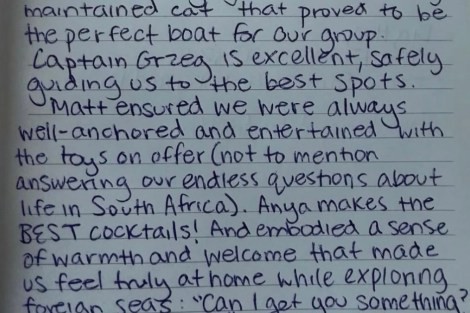 maintained cat that proved to be
the perfect boat for our group.
Captain Grzeg is excellent, safely
guiding us to the best spots.
Matt ensured we were always
well-anchored and entertained with
the toys on offer (not to mention
answering our endless questions about
life in South Africa). Anya makes the
BEST cocktails! And embodied a sense
of warmth and welcome that made
us feel truly at home while exploring
foreign seas: "Can I get you something?